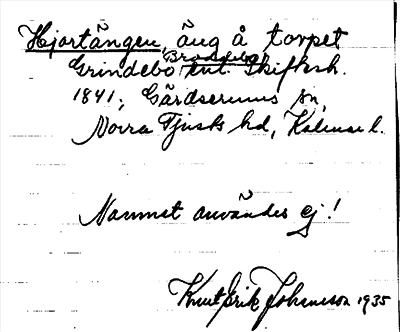 Hjortängen, äng å torpet
Grindebo, Broddebo, enl. Skifksh.
1841, Gärdserums sn,
Norra Tjusts hd, Kalmar l.
Namnet användes ej!
Knut Erik Johansson 1935